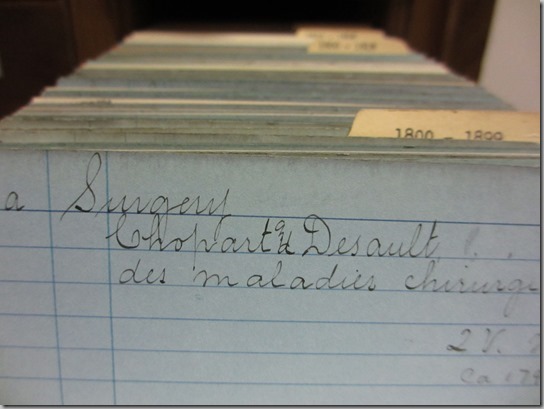 1800 - 1899
a Surgery
Chopart & Desault
des maladies chirurgi
2 V.
ca 179